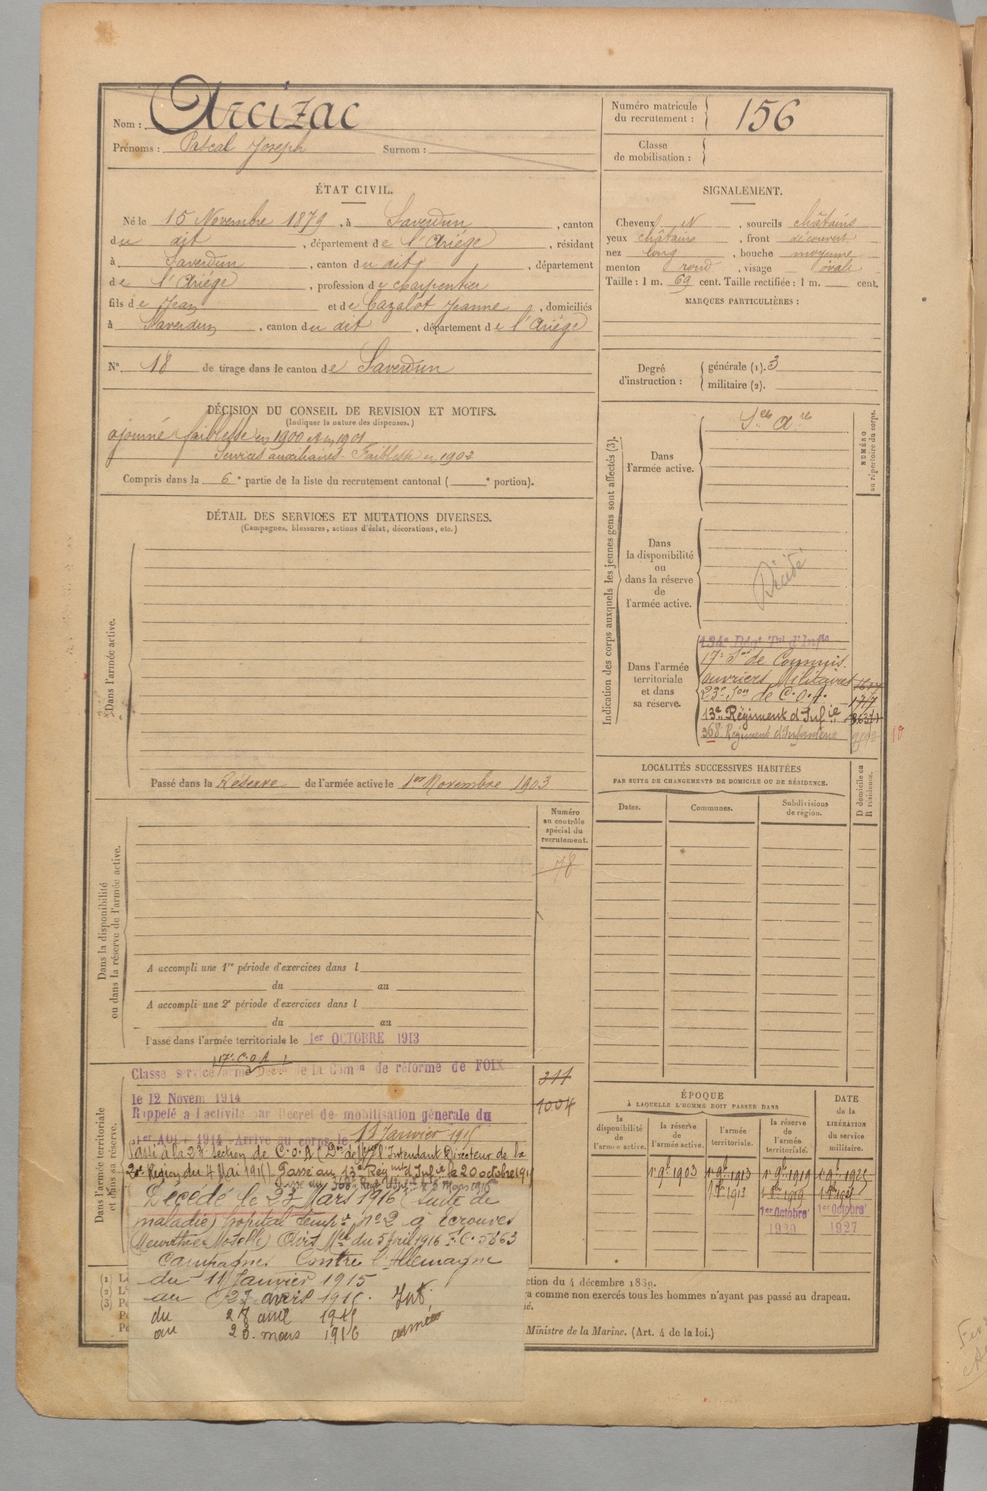 Nom : Arcizac
Prénoms : Pascal Joseph Surnom :
Numéro matricule du recrutement : 156
Classe de mobilisation :
ÉTAT CIVIL.
Né le 15 Novembre 1879, à Saverdun, canton
du dit, département de l'Ariège, résidant
à Saverdun, canton du dit, département
de l'Ariège, profession de Charpentier
fils de Jean et de Cazalot Jeanne, domiciliés
à Saverdun, canton du dit, département de l'Ariège
N° 18 de tirage dans le canton de Saverdun
SIGNALEMENT.
Cheveux N, sourcils châtains
yeux châtains, front découvert
nez long, bouche moyenne
menton rond, visage ovale
Taille : 1 m. 69 cent. Taille rectifiée : 1 m. cent.
MARQUES PARTICULIÈRES :
Degré d'instruction : générale (1). 3
militaire (2).
DÉCISION DU CONSEIL DE REVISION ET MOTIFS.
(Indiquer la nature des dispenses.)
ajourné faiblesse en 1900 et en 1901
Services auxiliaires Faiblesse en 1902
Compris dans la 6e partie de la liste du recrutement cantonal ( e portion).
DÉTAIL DES SERVICES ET MUTATIONS DIVERSES.
(Campagnes, blessures, actions d'éclat, décorations, etc.)
Dans l'armée active.
Passé dans la Réserve de l'armée active le 1er Novembre 1903
Dans la disponibilité ou dans la réserve de l'armée active.
Numéro au contrôle spécial du recrutement.
78
A accompli une 1re période d'exercices dans l
du au
A accompli une 2e période d'exercices dans l
du au
Passé dans l'armée territoriale le 1er OCTOBRE 1913
Dans l'armée territoriale et dans sa réserve.
17e C.O.A
Classé service armé Décon de la Comon de réforme de FOIX
le 12 Novem 1914
Rappelé à l'activité par Décret de mobilisation générale du
1er AOUT 1914 Arrivé au corps le 11 Janvier 1915
Passé à la 23e Section de C.O.A (Don de l'Intendant Directeur de la
Région du 4 Mai 1915) Passé au 13e Régnt d'Infie le 20 octobre 1915
Décédé le 23 Mars 1916 (suite de
maladie) hôpital tempre n°2 à écrouves
(Meurthe Moselle) Avis Mel du 5 Avril 1916 F.C. 5663
Campagnes Contre l'Allemagne
du 11 Janvier 1915
au 27 avril 1915. Int.
du 28 avril 1915
au 23 mars 1916 armées
311
1004
Indication des corps auxquels les jeunes gens sont affectés (3).
NUMÉRO au répertoire du corps.
Dans l'armée active.
Sces Ares
Dans la disponibilité ou dans la réserve de l'armée active.
Décédé
Dans l'armée territoriale et dans sa réserve.
134e Régt Tal d'Infie
17e Son de Commis
ouvriers Militaires
23e Son de C.O.A.
13e Régiment d'Infie
368e Régiment d'Infanterie
LOCALITÉS SUCCESSIVES HABITÉES
PAR SUITE DE CHANGEMENTS DE DOMICILE OU DE RÉSIDENCE.
Dates. Communes. Subdivisions de région. D domicile ou R résidence.
ÉPOQUE
À LAQUELLE L'HOMME DOIT PASSER DANS
DATE de la LIBÉRATION du service militaire.
la disponibilité de l'armée active. la réserve de l'armée active. l'armée territoriale. la réserve de l'armée territoriale.
1er 9bre 1903 1er 9bre 1913 1er 9bre 1919 1er 9bre 1925
1er 8bre 1913
1er Octobre 1920
1er Octobre 1927
(1)
(2)
(3)
ction du 4 décembre 1889.
a comme non exercés tous les hommes n'ayant pas passé au drapeau.
Ministre de la Marine. (Art. 4 de la loi.)